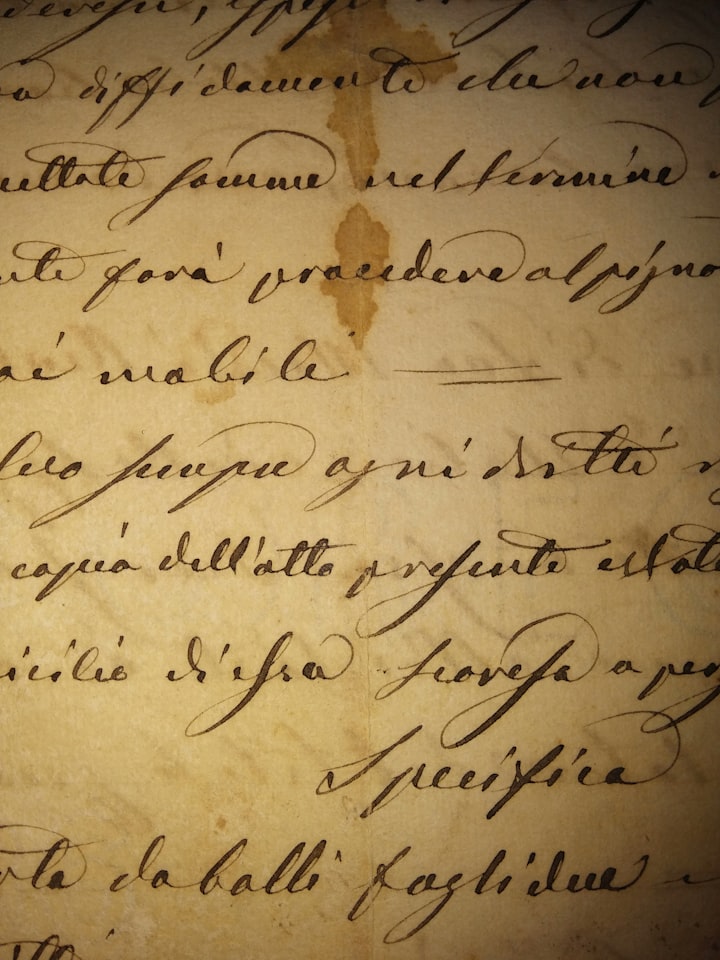 diffidamente che non
somme nel termine
farà procedere al pigno
mobili
sempre ogni dritti
copia dell'atto presente è stata
icilio di essa Scoressa a per
Specifica
da bolli fogli due